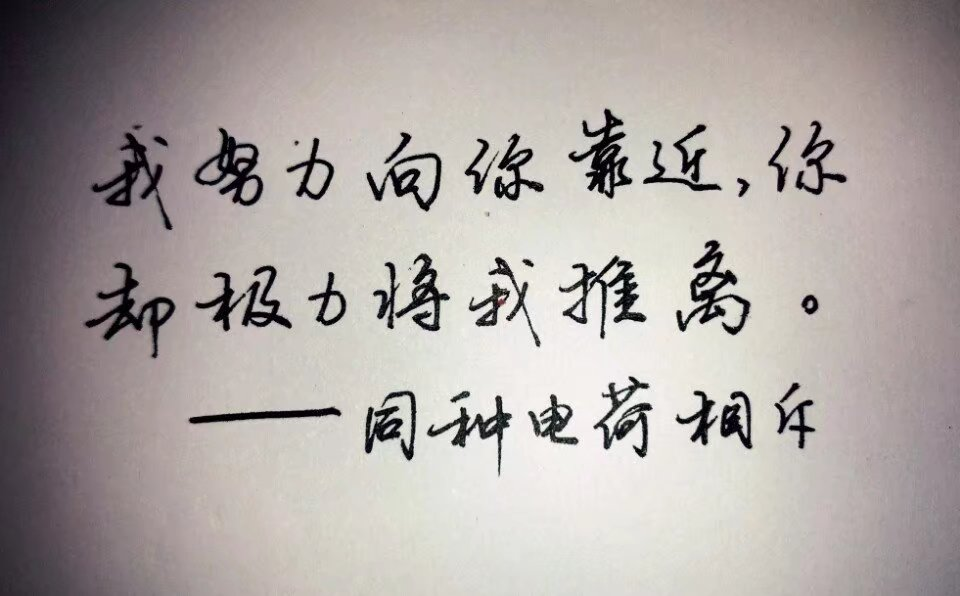 我努力向你靠近,你
却极力将我推离。
——同种电荷相斥